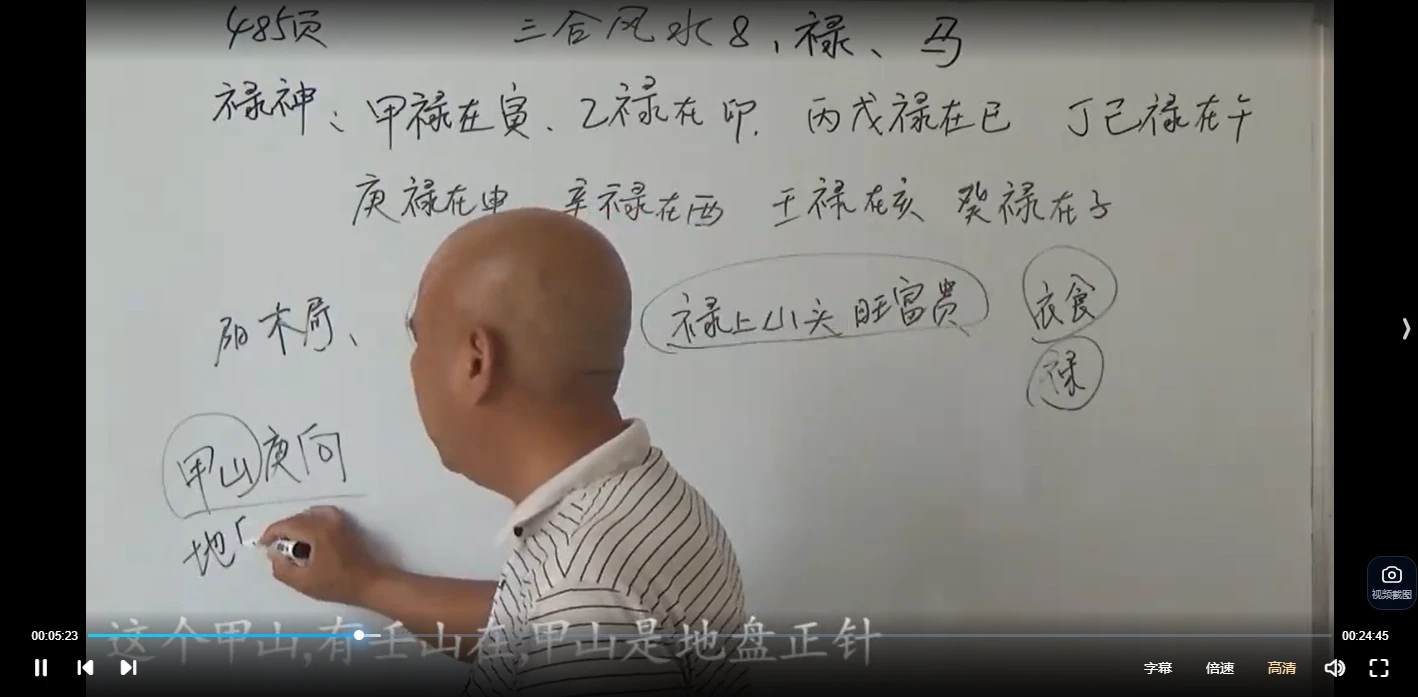 485页 三合风水8，禄、马
禄神：甲禄在寅、乙禄在卯. 丙戊禄在巳 丁己禄在午
庚禄在申 辛禄在酉 壬禄在亥 癸禄在子
阳木局、
禄上山头旺富贵
衣食
禄
甲山庚向
地
这个甲山,有壬山在,甲山是地盘正针
00:05:23
00:24:45
字幕 倍速 高清
视频截图